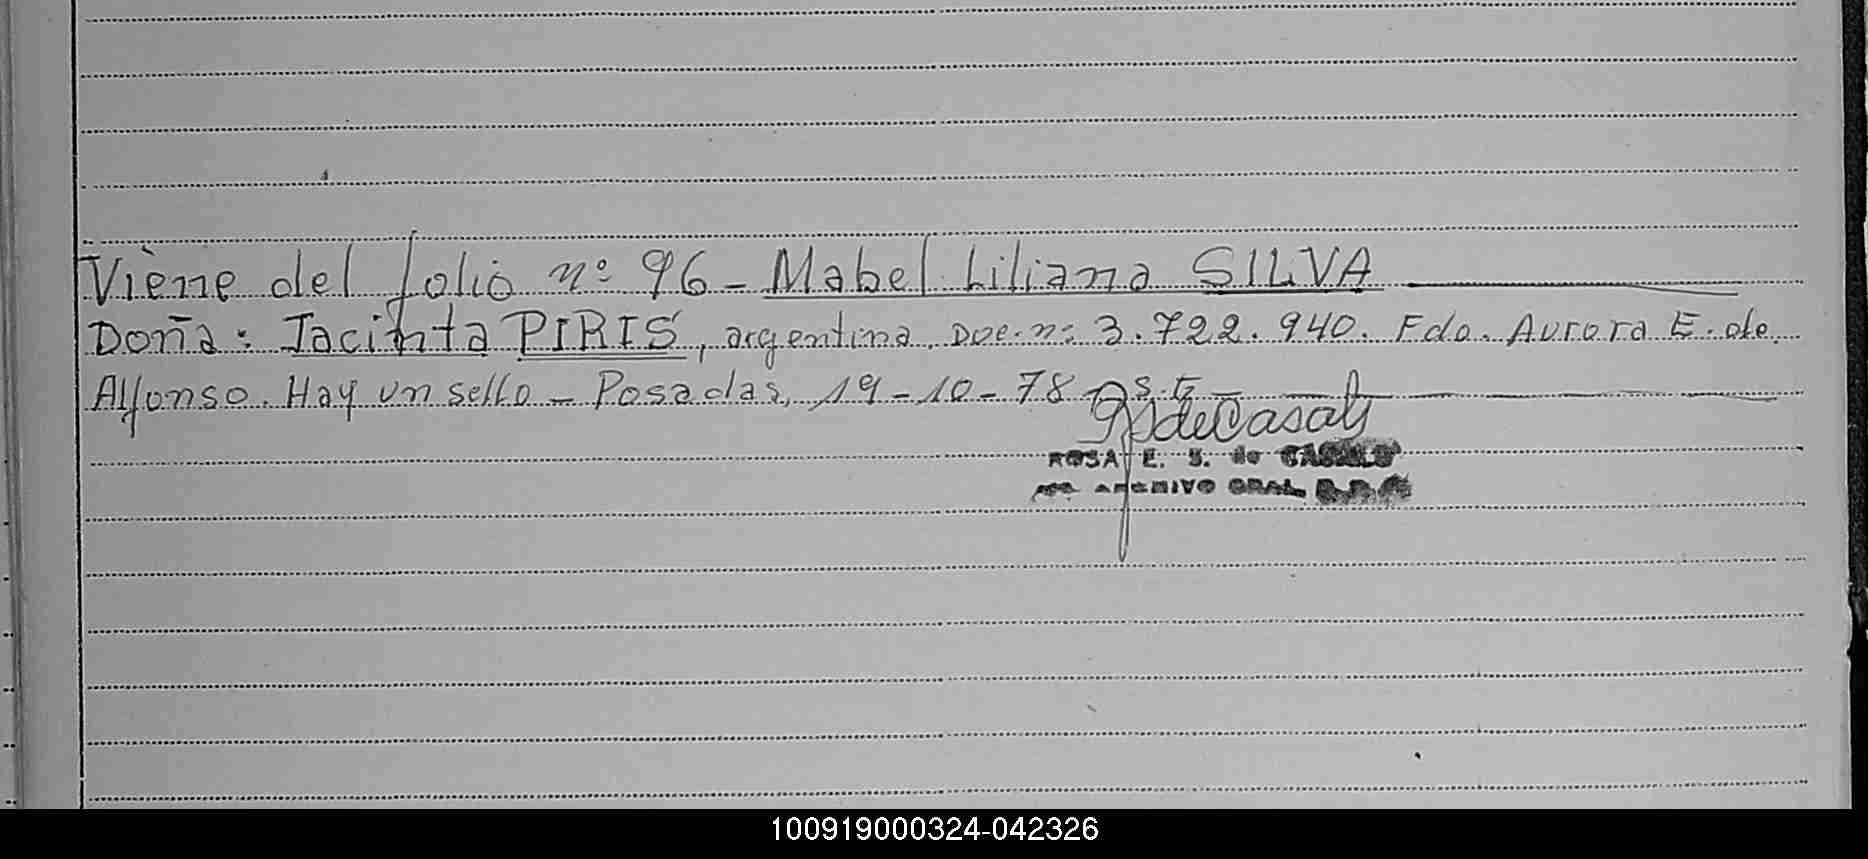 Viene del folio nº 96 - Mabel Liliana SILVA
Doña: Jacinta PIRIS, argentina. Doc. nº 3.722.940. Fdo. Aurora E. de
Alfonso. Hay un sello - Posadas, 19-10-78
ROSA E. S. de CASALS
ARCHIVO GRAL.
100919000324-042326